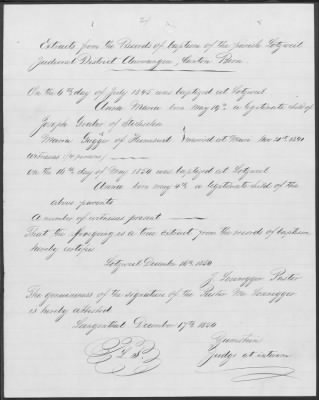 Extracts from the Records of baptism of the parish Lotzwil
Judicial District Aarwangen, Canton Bern.
On the 6th day of July 1845 was baptized at Lotzwil
Anna Maria born May 19th a legitimate child of
Joseph Geuler of
Maria Gygger of married at Nov. 20th 1840
witnesses
on the 16th day of May 1850 was baptized at Lotzwil
Anna born May 4th a legitimate child of the
above parents.
A number of witnesses present
That the foregoing is a true extract from the records of baptism
hereby certifies
Lotzwil December 16th 1850
J. Pastor
The genuineness of the signature of the Pastor Mr
is hereby attested
Langenthal December 17th 1850
L. S.
Judge ad interim